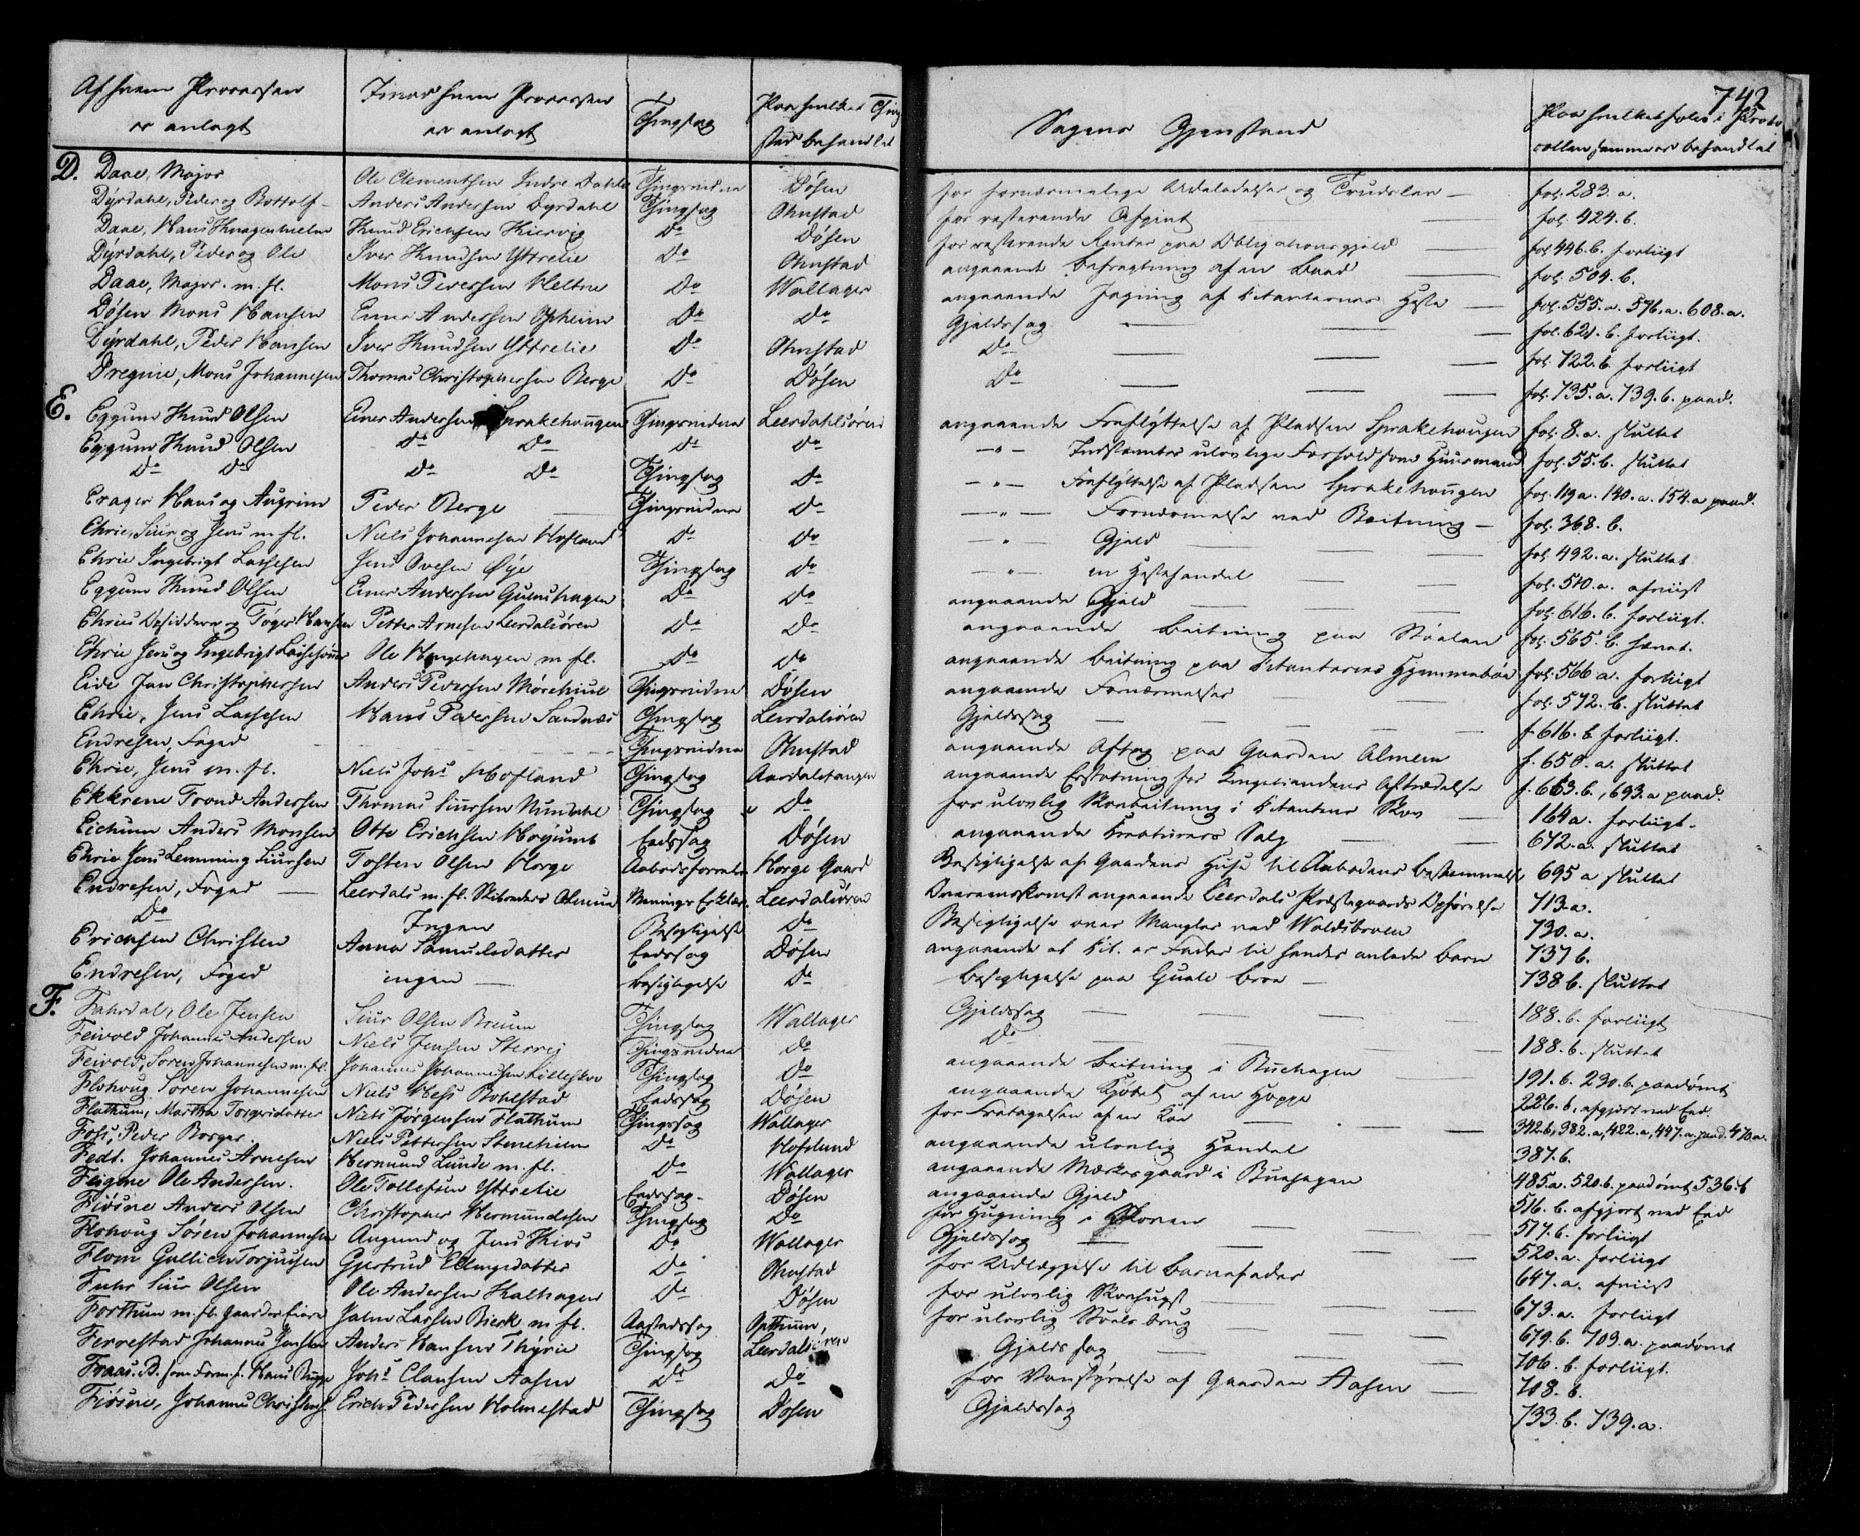 742
Af hvem Processen er anlagt | Imod hvem Processen er anlagt | Thingsag | Paa hvilket Thingsted behandlet | Sagens Gjenstand | Paa hvilket folio i Protocollen samme er behandlet
D. Daae, Major | Ole Clementsen Indre Dahle | Thingsvidne | Døsen | for fornærmelige Udeladelser og Trudsler — | fol. 283. a.
Dÿrdahl, Peder og Bottolf | Anders Andersen Dyrdahl | Thingsag | Ohnstad | for resterende Afgivt — | fol. 424. b.
Daae, Hans Knagenhielm | Knud Erichsen Kiervig | Do | Døsen | for resterende Renter paa Obligationsgjeld — | fol. 446. b. forliigt
Dÿrdahl, Peder og Ole | Iver Knudsen Yttrelie | Do | Ohnstad | angaaende Befragtning af en Baad — | fol. 504. b.
Daae, Major. m. fl. | Mons Pedersen Heltne | Do | Wallager | angaaende Jagning af Citanternes Heste — | fol. 555. a. 576. a. 608. a.
Døsen Mons Hansen | Einer Andersen Opheim | Do | Do | Gjeldssag — | fol. 621. b. forliigt.
Dÿrdahl, Peder Hansen | Iver Knudsen Yttrelie | Do | Ohnstad | Do — | fol. 722. b. forliigt
Dregnie, Mons Johannesen | Thomas Christophersen Berge | Do | Døsen | Do — | fol. 735. a. 739. b. paad.
E. Eggum Knud Olsen | Einer Andersen Sprakehougen | Thingsvidne | Leerdahlsøren | angaaende Fraflÿttelse af Pladsen Sprakehougen | fol. 8. a. sluttet
Eggum Knud Olsen | Do Do | Do | Do | — " — Indstevntes ulovlige Forhold som Huusmand | fol. 55. b. sluttet
Do Do | Do Do | Thingsag | Do | — " — Fraflÿttelse af Pladsen Sprakehougen | fol. 119 a. 140. a. 154. a paad.
Erager Hans og Augrim | Peder Berge — | Thingsvidne | Do | — " — Fornærmelse ved Beitning — | fol. 368. b.
Ehrie, Siur og Jens m. fl. | Niels Johannesen Hofland | Do | Do | — " — Gjeld — | fol. 492. a. sluttet
Ehrie Ingebrigt Lassesen | Jens Ovesen Øye | Thingsag | Do | — " — en Hestehandel — | fol. 510. a. afviist
Eggum Knud Olsen | Einer Andersen Guluhagen | Do | Do | angaaende Gjeld — | fol. 616. b. forliigt.
Ehries Opsiddere og Tøger Hansen | Petter Arnesen Leerdalsøren | Do | Do | angaaende Beitning paa Stølen | fol. 565. b. hævet.
Ehrie Jens og Ingebrigt Lassesønner | Ole Haugehagen m fl. | Do | Do | angaaende Beitning paa Citanternes Hjemmebøe | fol. 566 a. forliigt
Eide Jan Christophersen | Anders Pedersen Mørchiul | Thingsvidne | Døsen | angaaende Fornærmelser — | fol. 572. b. sluttet
Ehrie, Jens Lassesen | Hans Pedersen Sandnæs | Thingsag | Leerdalsøren | Gjeldssag — | f. 616. b forliigt.
Endresen, Foged | — | Thingsvidne | Ohnstad | angaaende Aftag paa Gaarden Almem | f. 650. a. sluttet
Ehrie, Jens m. fl. | Niels Johs Hofland | Thingsag | Aardalstangen | angaaende Erstatning for Engelændes Aftrædelse | f. 663. b., 693. a paad.
Ekkrene Trond Andersen | Thomas Siursen Nundahl | Thingsag | Do | for ulovlig Skovbeitning i Citantens Skov | 164 a. forliigt.
Eichum Anders Monsen | Otto Erichsen Horjum | Eedssag | Døsen | angaaende Creaturers Salg — | 672. a. sluttet
Ehrie Jens Lemming Siursen | Tosten Olsen Horge | Aabodsforretn | Horge Gaard | Besigtigelse af Gaardens Huse til Aabodens bestemmelse | 695 a sluttet
Endresen, Foged — | Leerdals m. fl. Skibreders Almue | Menings Erklær. | Leerdalsøren | angaaende Leerdals Præstegaards Opførelse | 713. a.
Do | Ingen | Besigtigelse | Do | Besigtigelse over Mangler ved Woldsbroen | 730. a.
Erichsen Christen | Anna Samuelsdatter | Eedssag | Døsen | angaaende at Cit. er Fader til hendes avlede Barn | 737 b.
Endresen, Foged | ingen — | besigtigelse | Do | Besigtigelse paa Broe — | 738 b. sluttet
F. Fahrdal, Ole Jensen | Siur Olsen Bruum | Thingsag | Wallager | Gjeldssag — | 188. b. forliigt
Feivold Johannes Andersen | Niels Jensen Sterrej | Thingsvidne | Do | Do — | 188. b. sluttet
Feivold, Soren Johannesen m. fl. | Johannes Johannesen Lilleskov | Thingsag | Do | angaaende Beitning i Buehagen — | 191. b. 230. b. paadømt
Flohoug Søren Johannesen | Niels Hess Bolstad | Eedssag | Døsen | angaaende Kjøbet af en Hoppe | 226. b, afgjort ved Eed.
Flathum, Martha Torgersdatter | Niels Jørgensen Flathum | Thingssag | Wallager | for Fratagelsen af en Koe — | 342 b, 382. a, 422. a, 447. a. paad. 470 a.
Foss, Peder Borger. | Niels Pettersen Stenehien | Do | Hofslund | angaaende ulovlig Handel | 387. b.
Fedt. Johannes Arnesen | Hermund Lunde m. fl. | Do | Wallager | angaaende Merkesgaard i Buehagen | 485. a. 520. b. paadømt 536. b
Feigne Ole Andersen. | Ole Tollefsen Yttrelie | Eedssag. | Døsen | angaaende Gjeld | 516. b. afgjort ved Eed
Fiøsne Anders Olsen | Christopher Hermundsen | Thingsag | Do | for Hugning i Skoven — | 517. b. forliigt
Flohoug Søren Johannesen | Augund og Jens Kios | Do | Wallager | Gjeldssag — | 520. a. forliigt
Flom Gullich Torjusen | Gjertrud Ellingsdatter | Do | Ohnstad | for Udlæggelse til Barnefader | 647. a. afviist
Fuhr Siur Olsen | Ole Andersen Kalhagen | Do | Døsen | for ulovlig Skovhugst — | 673. a. forliigt
Forthun m. fl. Gaardes Eiere | John Lassen Bierk m fl. | Aastedssag | Opthun, | for ulovlig Støels brug — | 679. b. 703. a. paadømt
Ferrestad Johannes Jensen | Anders Hansen Thÿrie | Thingsag | Leerdalsøren | Gjelds sag — | 706. b. forliigt.
Fraas. D. som Form. f. Hans Rumpe | Johs Clausen Aasen | Do | Do | for Vanstÿrelse af Gaarden Aasen — | 718. b.
Fiøsne, Johannes Christens. | Erich Pedersen Holmestad | Thingsag | Døsen | Gjeldssag | 733. b. 739. a.